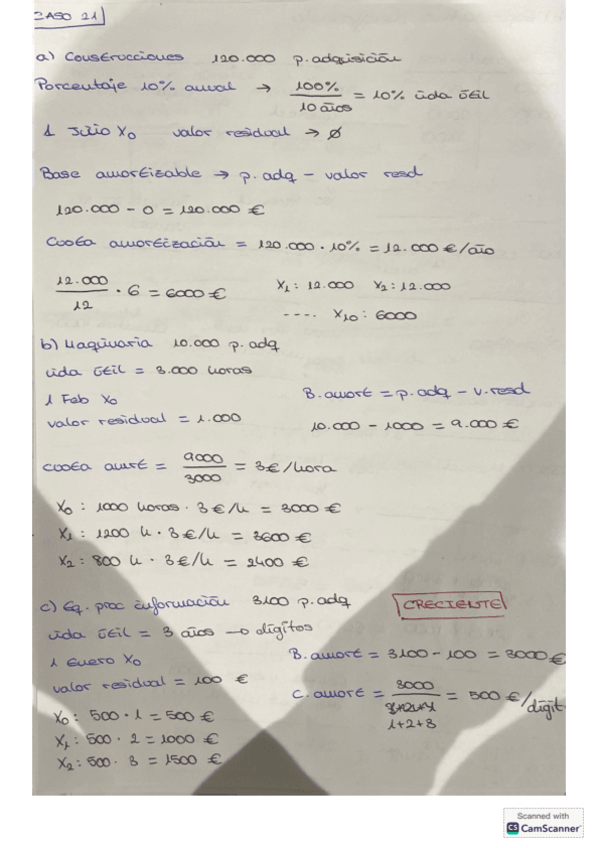 CASO 21
a) Construcciones 120.000 p.adquisición
Porcentaje 10% anual → 100% / 10 años = 10% vida útil
1 Julio X0 valor residual → ∅
Base amortizable → p.adq - valor resd
120.000 - 0 = 120.000 €
Cuota amortización = 120.000 · 10% = 12.000 €/año
12.000 / 12 · 6 = 6000 € X1: 12.000 X2: 12.000
---- X10: 6000
b) Maquinaria 10.000 p.adq
vida útil = 3.000 horas
1 Feb X0 B.amort = p.adq - v.resd
valor residual = 1.000 10.000 - 1000 = 9.000 €
cuota amrt = 9000 / 3000 = 3€/hora
X0: 1000 horas · 3€/h = 3000 €
X1: 1200 h · 3€/h = 3600 €
X2: 800 h · 3€/h = 2400 €
c) Eq. proc información 3100 p.adq CRECIENTE
vida útil = 3 años → dígitos
1 Enero X0 B.amort = 3100 - 100 = 3000€
valor residual = 100 € C.amort = 3000 / 1+2+3 = 500 €/dígit
X0: 500 · 1 = 500 €
X1: 500 · 2 = 1000 €
X2: 500 · 3 = 1500 €
Scanned with
CS CamScanner